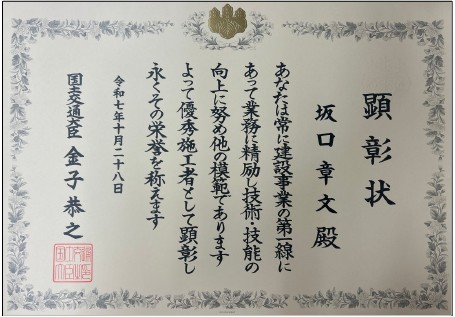 顕彰状
坂口章文殿
あなたは常に建設事業の第一線に
あって業務に精励し技術・技能の
向上に努め他の模範であります
よって優秀施工者として顕彰し
永くその栄誉を称えます
令和七年十月二十八日
国土交通大臣 金子恭之